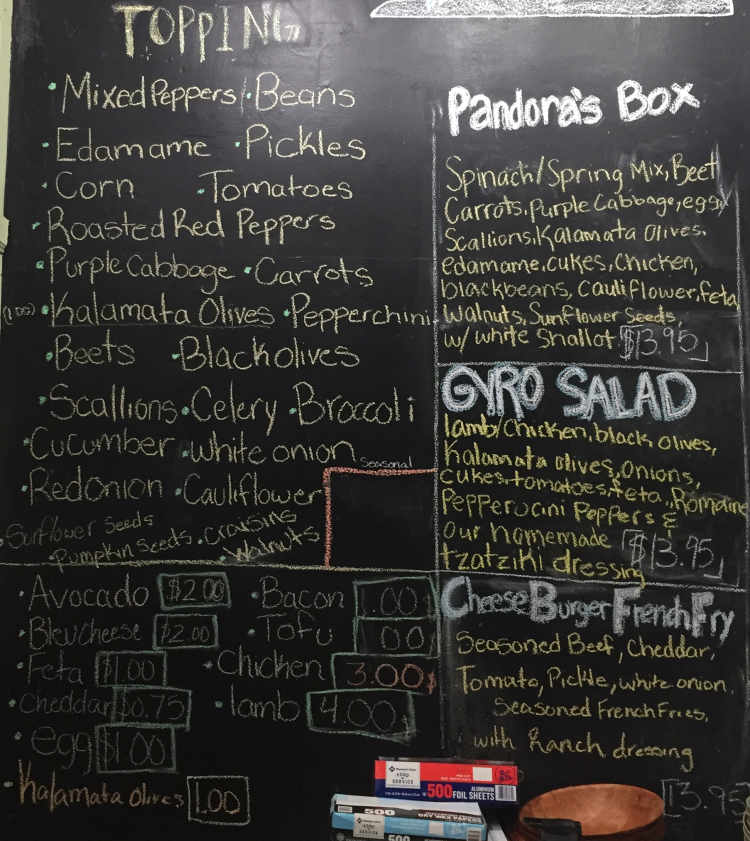 TOPPING
• Mixed Peppers/• Beans
• Edamame • Pickles
• Corn • Tomatoes
• Roasted Red Peppers
• Purple Cabbage • Carrots
(1.00) • Kalamata Olives • Pepperchini
• Beets • Blackolives
• Scallions • Celery Broccoli
• Cucumber • White onion
• Redonion • Cauliflower
• Sunflower Seeds
• Pumpkin Seeds • Craisins
• Walnuts
Seasonal
• Avocado $2.00 • Bacon 1.00
• Bleu Cheese $2.00 • Tofu
• Feta $1.00 • Chicken 3.00
• Cheddar $0.75 • lamb 4.00
• egg $1.00
• Kalamata Olives 1.00
Pandora's Box
Spinach/Spring Mix, Beet
Carrots, Purple Cabbage, egg,
Scallions, Kalamata Olives,
edamame, cukes, Chicken,
blackbeans, Cauliflower, feta,
Walnuts, Sunflower Seeds,
w/ White Shallot $13.95
GYRO SALAD
lamb/Chicken, black olives,
Kalamata olives, onions,
cukes, tomatoes, feta, Romaine
Pepperocini Peppers &
our homemade $13.95
tzatziki dressing
Cheese Burger French Fry
Seasoned Beef, Cheddar,
Tomato, Pickle, white onion.
Seasoned French Fries,
with Ranch dressing
13.95
500 ALUMINUM FOIL SHEETS
500
500